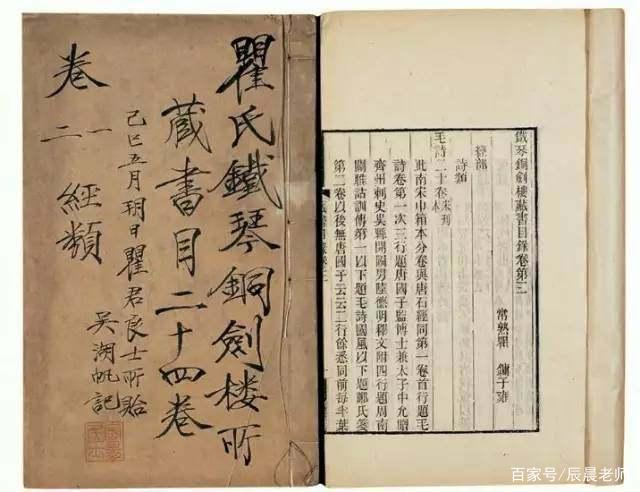 瞿氏鐵琴銅劍樓所
藏書目二十四卷
卷一二 經類
己巳五月朔日瞿君良士所貽
吳湖帆記
鐵琴銅劍樓藏書目錄卷第三
常熟瞿 鏞子雍
經部
詩類
毛詩二十卷 宋刊本
此南宋巾箱本分卷與唐石經同第一卷首行題毛
詩卷第一次三行題唐國子監博士兼太子中允贈
齊州刺史吳縣開國男陸德明釋文附四行題周南
關雎詁訓傳第一以下題毛詩國風以下題鄭氏箋
第二卷以後無唐國子云云二行餘悉同前每半葉
百家号/辰晨老师